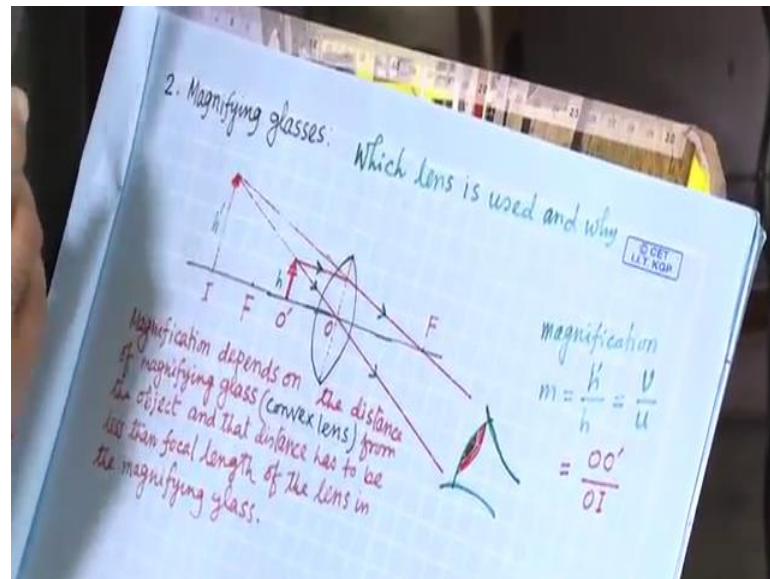 2. Magnifying glasses:
Which lens is used and why
© CET
I.I.T. KGP
h'
h
I
F
O'
O
F
Magnification depends on the distance
of magnifying glass (convex lens) from
the object and that distance has to be
less than focal length of the lens in
the magnifying glass.
magnification
m = h'/h = v/u
= OO'/OI